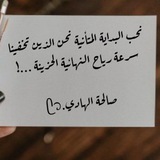 نحب البداية المتأنية نحن الذين تخيفنا
سرعة رياح النهائية الحزينة ...!
صالحة الهادي.